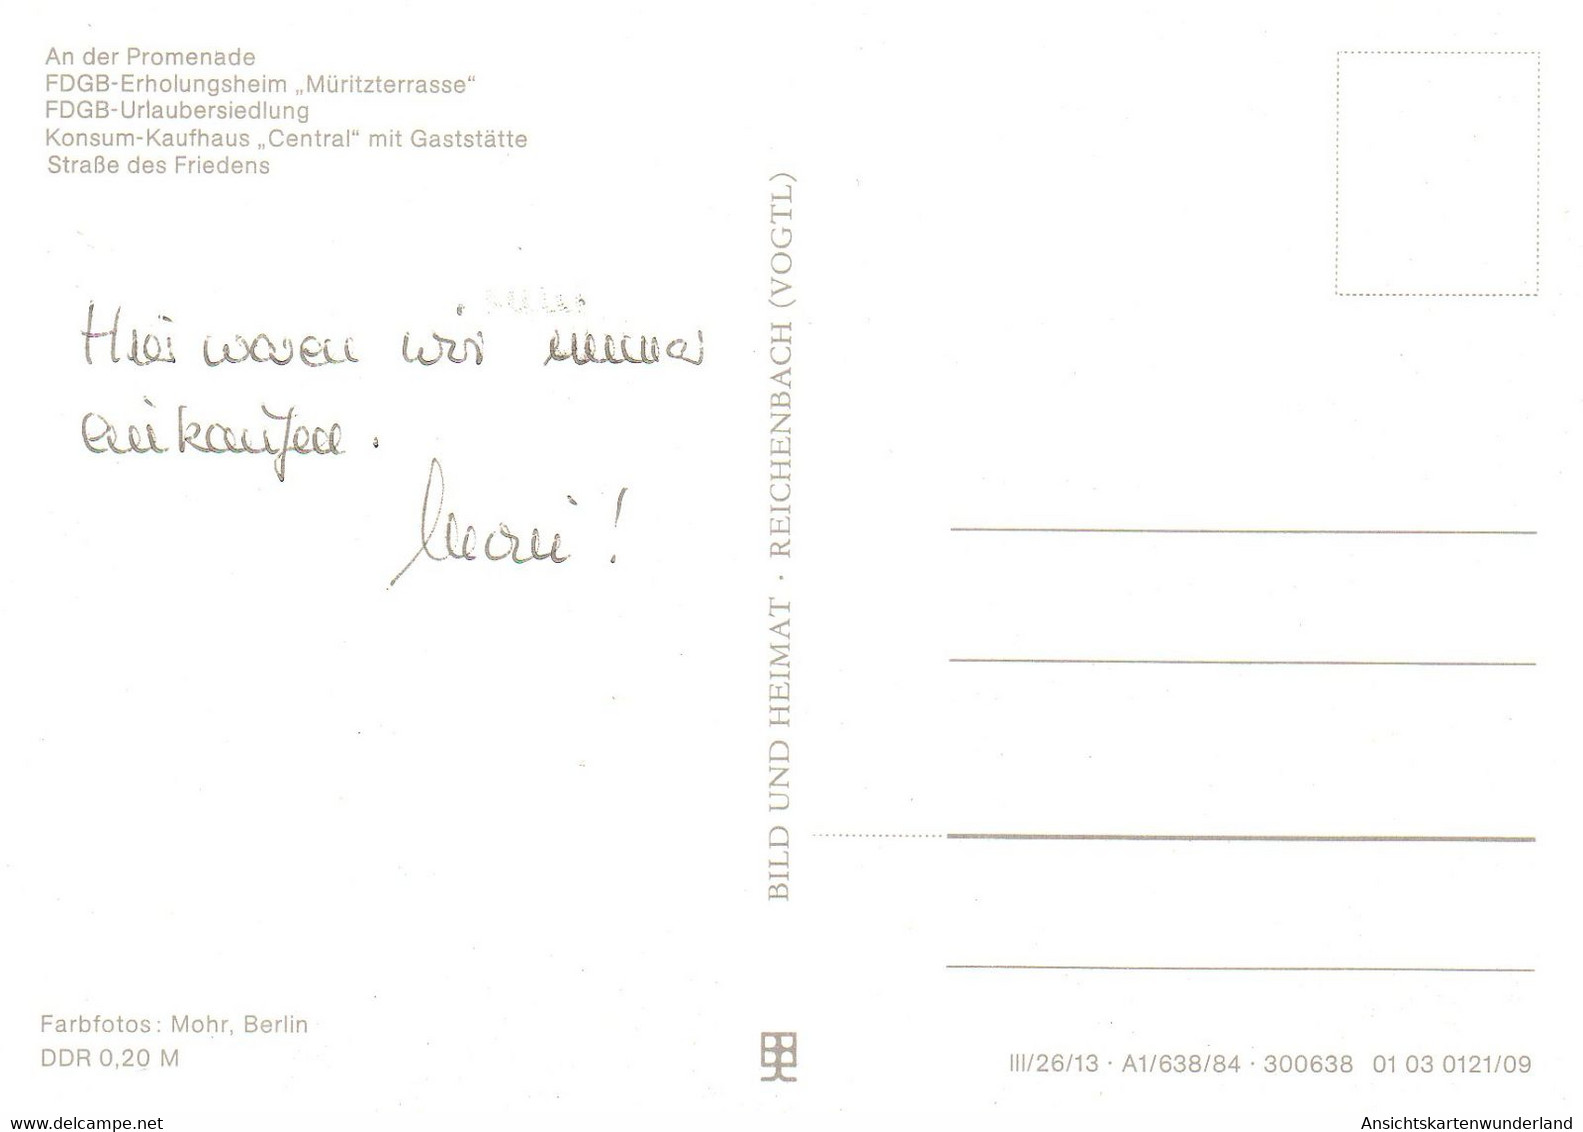 An der Promenade
FDGB-Erholungsheim „Müritzterrasse“
FDGB-Urlaubersiedlung
Konsum-Kaufhaus „Central“ mit Gaststätte
Straße des Friedens
Hier waren wir immer
einkaufen.
!
BILD UND HEIMAT · REICHENBACH (VOGTL)
Farbfotos: Mohr, Berlin
DDR 0,20 M
III/26/13 · A1/638/84 · 300638 01 03 0121/09
www.delcampe.net
Ansichtskartenwunderland